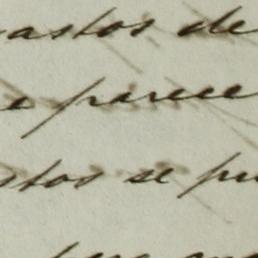 astos de
e parece
stos se pu